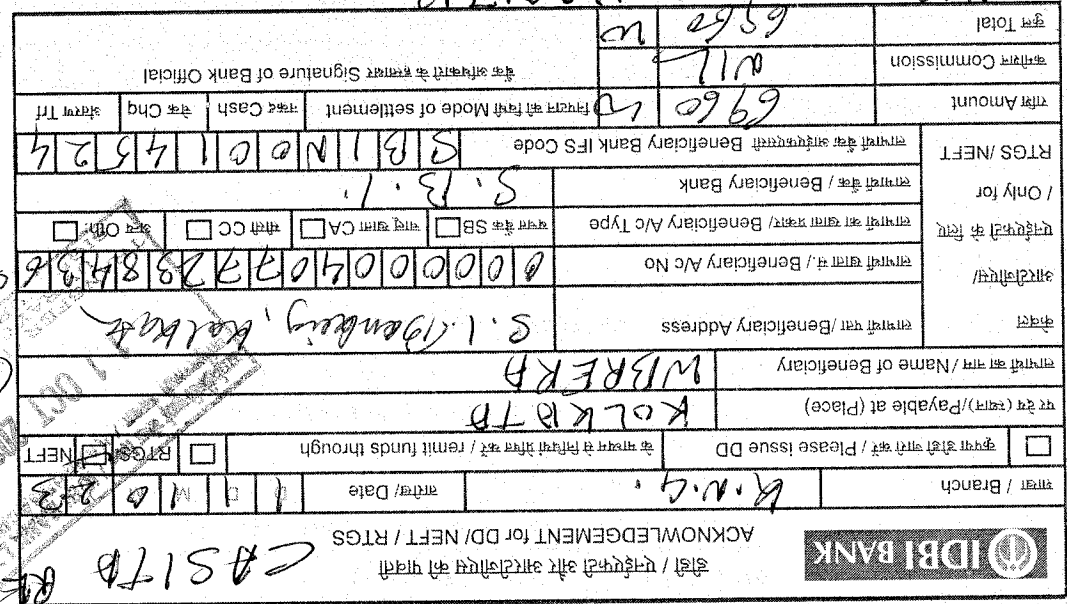 IDBI BANK
डीडी / एनईएफटी और आरटीजीएस की पावती
ACKNOWLEDGEMENT for DD/ NEFT / RTGS
CASITA
शाखा / Branch K.N.G. तारीख/ Date 11 10 23
कृपया डीडी जारी करें / Please issue DD के माध्यम से निधियां प्रेषित करें / remit funds through RTGS NEFT
पर देय (स्थान)/Payable at (Place) KOLKATA
लाभार्थी का नाम /Name of Beneficiary WBRERA
केवल आरटीजीएस/ एनईएफटी के लिए / Only for RTGS /NEFT
लाभार्थी पता /Beneficiary Address S. I. Kolkata
लाभार्थी खाता नं./ Beneficiary A/c No 0000004077238436
लाभार्थी का खाता प्रकार/ Beneficiary A/c Type बचत बैंक SB चालू खाता CA सीसी CC अन्य Oth.
लाभार्थी बैंक / Beneficiary Bank S. B. I.
लाभार्थी बैंक आईएफएससी Beneficiary Bank IFS Code SBIN0014524
राशि Amount 6960 निपटान की विधि Mode of settlement नकद Cash चेक Chq अंतरण Trf
कमीशन Commission NIL
कुल Total 6960
बैंक अधिकारी के हस्ताक्षर Signature of Bank Official
11 OCT